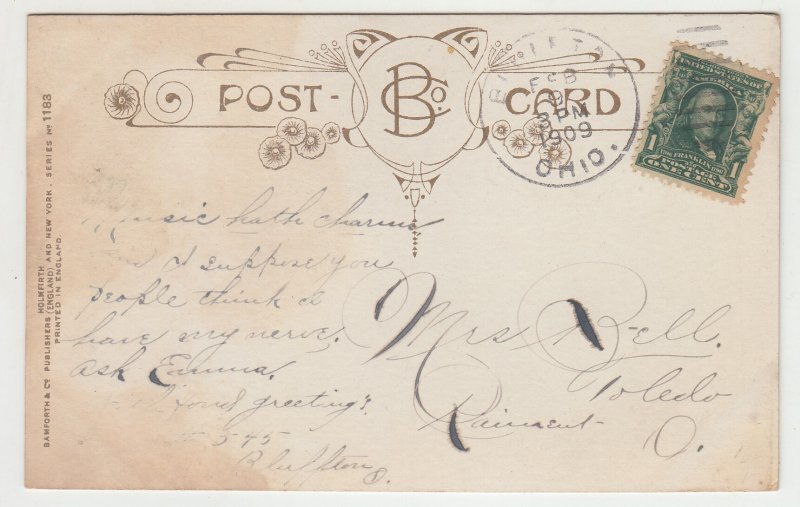 POST-
BCo.
CARD
FEB
9
3 PM
1909
OHIO.
UNITED STATES OF
AMERICA
1
1
FRANKLIN
POSTAGE
ONE CENT
Music hath charms
I suppose you
people think I
have my nerve.
ask Emma.
greetings
545
Bluffton
O.
Mrs Bell.
Toledo
O.
BAMFORTH & Co PUBLISHERS (ENGLAND) AND NEW YORK. SERIES No 1183
HOLMFIRTH
PRINTED IN ENGLAND.